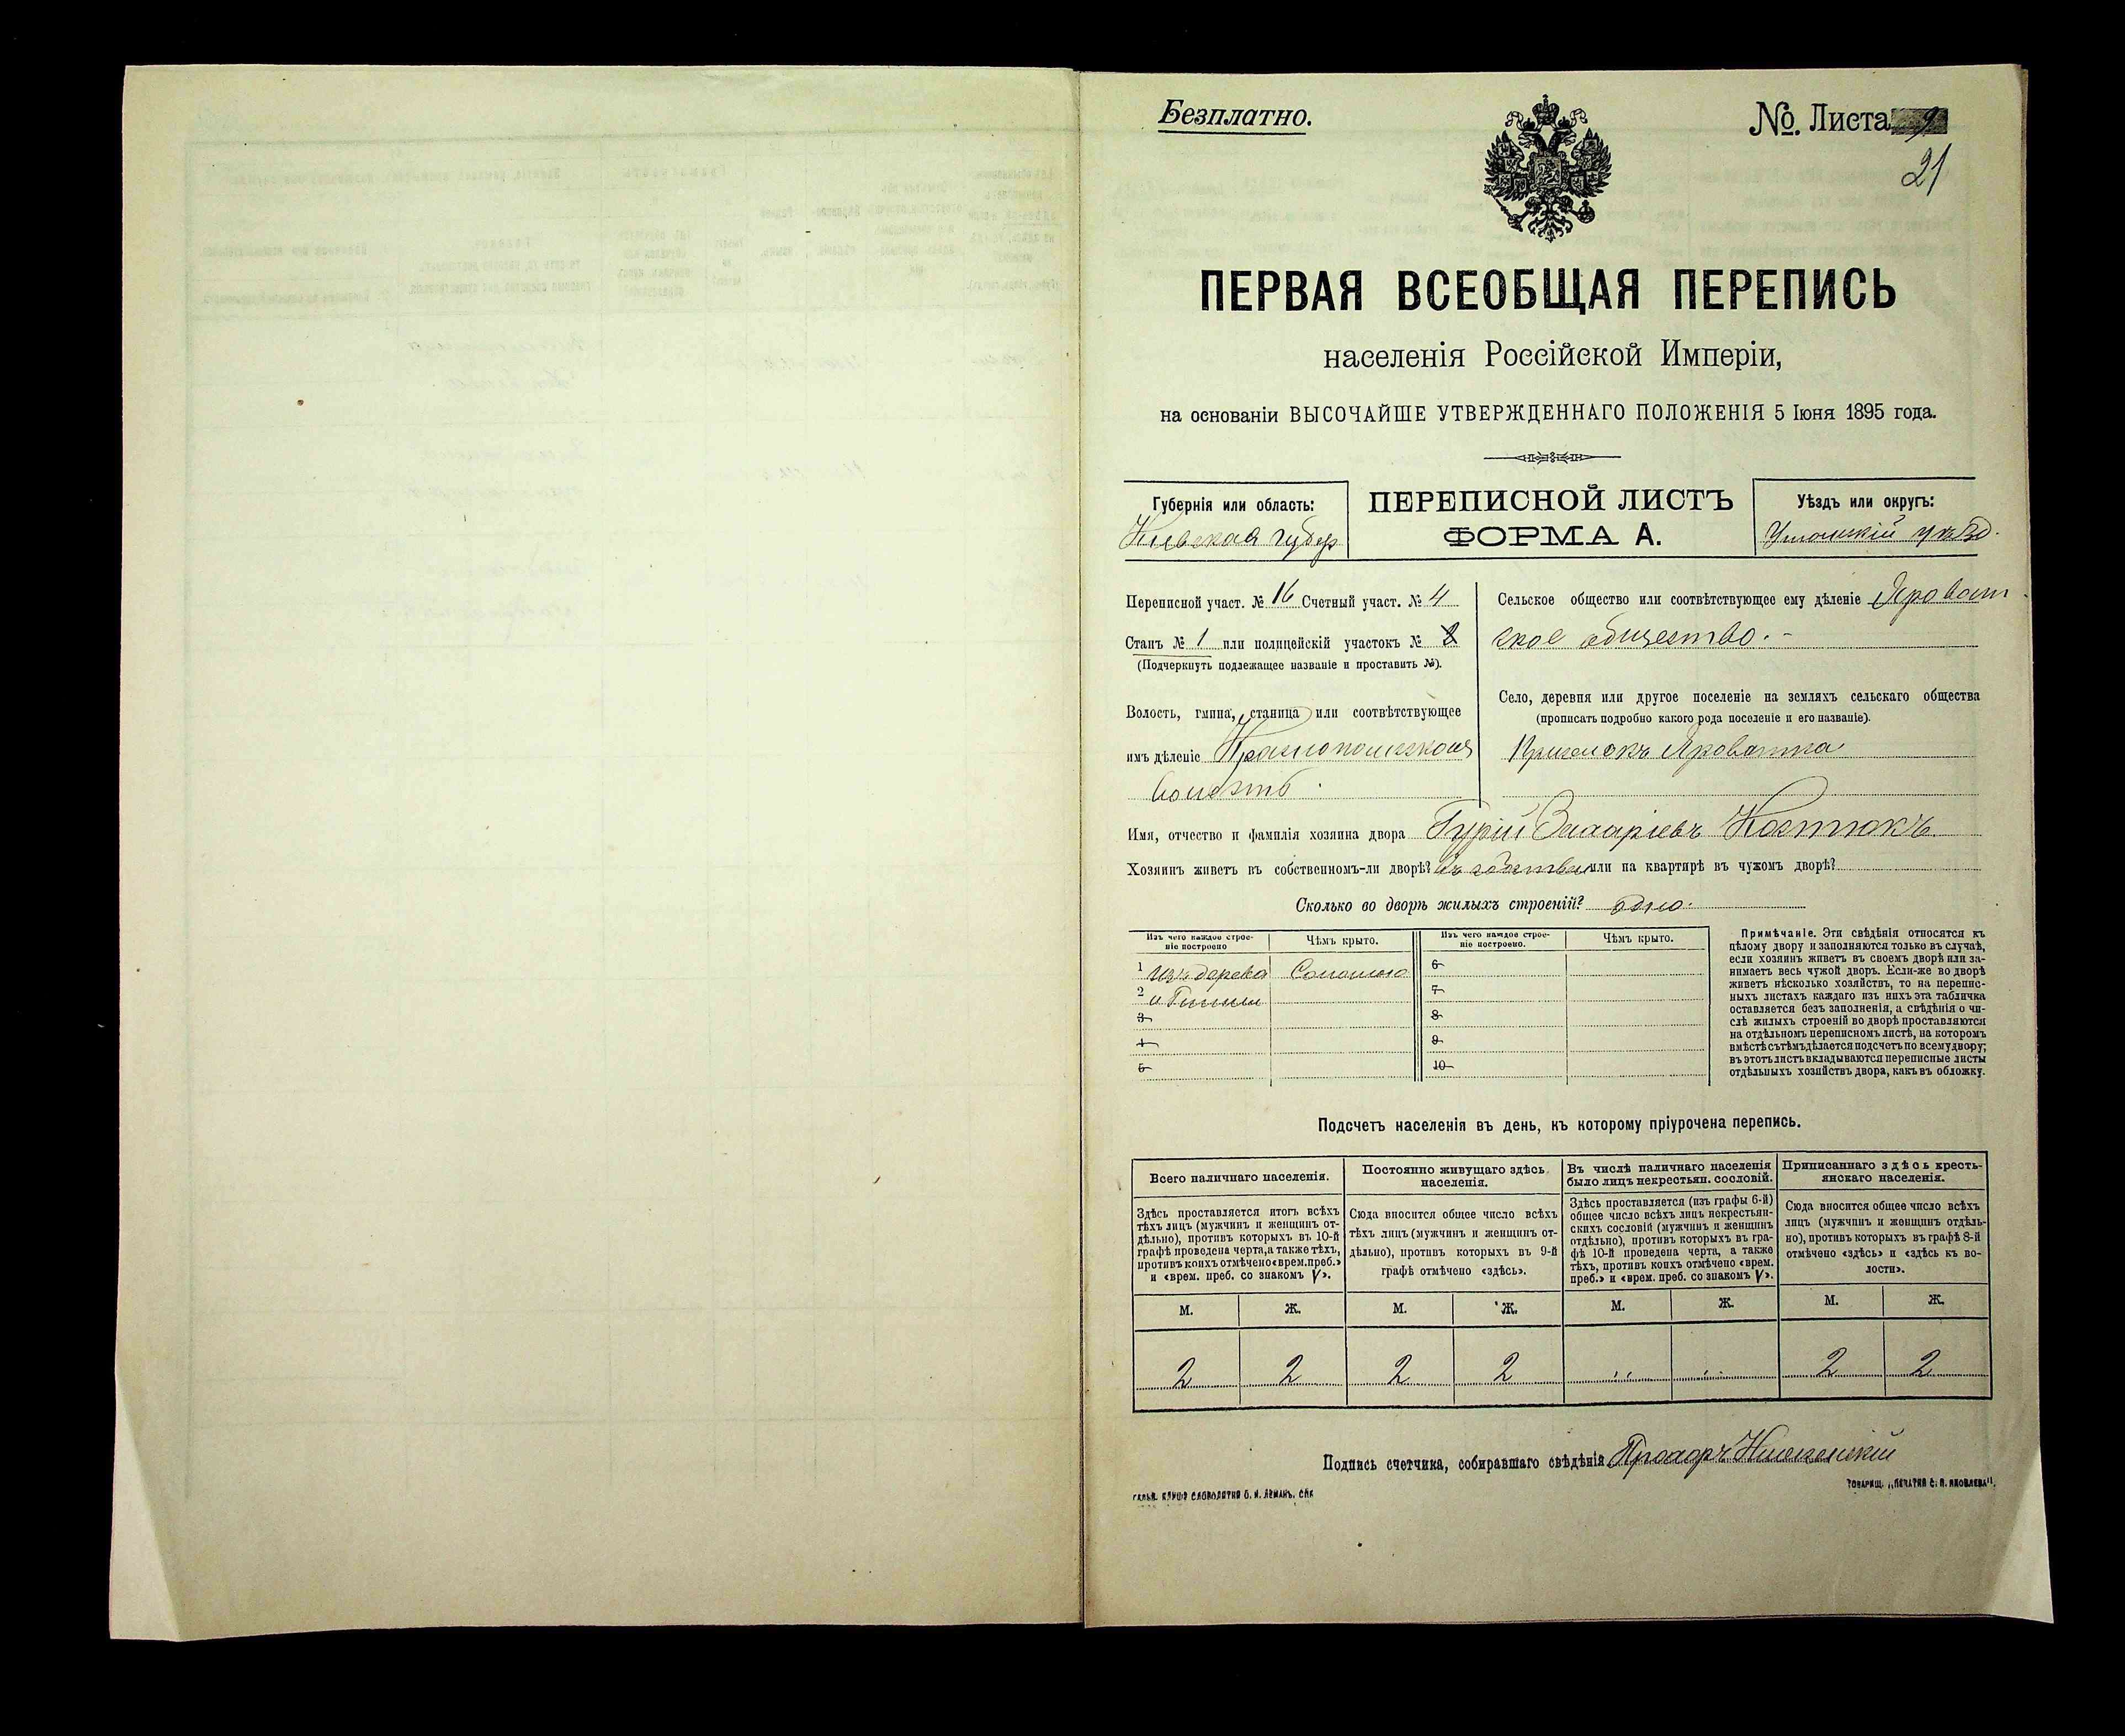 Безплатно.
№. Листа 9
21
ПЕРВАЯ ВСЕОБЩАЯ ПЕРЕПИСЬ
населенія Россійской Имперіи,
на основаніи ВЫСОЧАЙШЕ УТВЕРЖДЕННАГО ПОЛОЖЕНІЯ 5 Іюня 1895 года.
Губернія или область:
Кіевская губер
ПЕРЕПИСНОЙ ЛИСТЪ
ФОРМА А.
Уѣздъ или округъ:
Уманскій уѣзд.
Переписной участ. № 16 Счетный участ. № 4
Станъ № 1 или полицейскій участокъ №
(Подчеркнуть подлежащее названіе и проставить №).
Волость, гмина, станица или соотвѣтствующее
имъ дѣленіе Краснопольская
волость.
Сельское общество или соотвѣтствующее ему дѣленіе Яроват
ское общество. -
Село, деревня или другое поселеніе на земляхъ сельскаго общества
(прописать подробно какого рода поселеніе и его названіе).
Яроватка
Имя, отчество и фамилія хозяина двора Гурій Захаріевъ Костюкъ
Хозяинъ живетъ въ собственномъ-ли дворѣ? Въ собствен или на квартирѣ въ чужомъ дворѣ?
Сколько во дворѣ жилыхъ строеній? одно.
Изъ чего каждое строе-
ніе построено
Чѣмъ крыто.
Изъ чего каждое строе-
ніе построено.
Чѣмъ крыто.
1 изъ дерева Соломою 6
2 и Глины 7
3 8
4 9
5 10
Примѣчаніе. Эти свѣдѣнія относятся къ
цѣлому двору и заполняются только въ случаѣ,
если хозяинъ живетъ въ своемъ дворѣ или за-
нимаетъ весь чужой дворъ. Если-же во дворѣ
живетъ нѣсколько хозяйствъ, то на перепис-
ныхъ листахъ каждаго изъ нихъ эта табличка
оставляется безъ заполненія, а свѣдѣнія о чи-
слѣ жилыхъ строеній во дворѣ проставляются
на отдѣльномъ переписномъ листѣ, на которомъ
вмѣстѣ съ тѣмъ дѣлается подсчетъ по всему двору;
въ этотъ листъ вкладываются переписные листы
отдѣльныхъ хозяйствъ двора, какъ въ обложку.
Подсчетъ населенія въ день, къ которому пріурочена перепись.
Всего наличнаго населенія.
Здѣсь проставляется итогъ всѣхъ
тѣхъ лицъ (мужчинъ и женщинъ от-
дѣльно), противъ которыхъ въ 10-й
графѣ проведена черта, а также тѣхъ,
противъ коихъ отмѣчено «врем. преб.»
и «врем. преб. со знакомъ V».
Постоянно живущаго здѣсь
населенія.
Сюда вносится общее число всѣхъ
тѣхъ лицъ (мужчинъ и женщинъ от-
дѣльно), противъ которыхъ въ 9-й
графѣ отмѣчено «здѣсь».
Въ числѣ наличнаго населенія
было лицъ некрестьян. сословій.
Здѣсь проставляется (изъ графы 6-й)
общее число всѣхъ лицъ некрестьян-
скихъ сословій (мужчинъ и женщинъ
отдѣльно), противъ которыхъ въ гра-
фѣ 10-й проведена черта, а также
тѣхъ, противъ коихъ отмѣчено «врем.
преб.» и «врем. преб. со знакомъ V».
Приписаннаго здѣсь кресть-
янскаго населенія.
Сюда вносится общее число всѣхъ
лицъ (мужчинъ и женщинъ отдѣль-
но), противъ которыхъ въ графѣ 8-й
отмѣчено «здѣсь» и «здѣсь къ во-
лости».
М. Ж. М. Ж. М. Ж. М. Ж.
2 2 2 2 „ „ 2 2
Подпись счетчика, собиравшаго свѣдѣнія Прохоръ
ТОВАРИЩ. „ПЕЧАТНЯ С. П. ЯКОВЛЕВА".